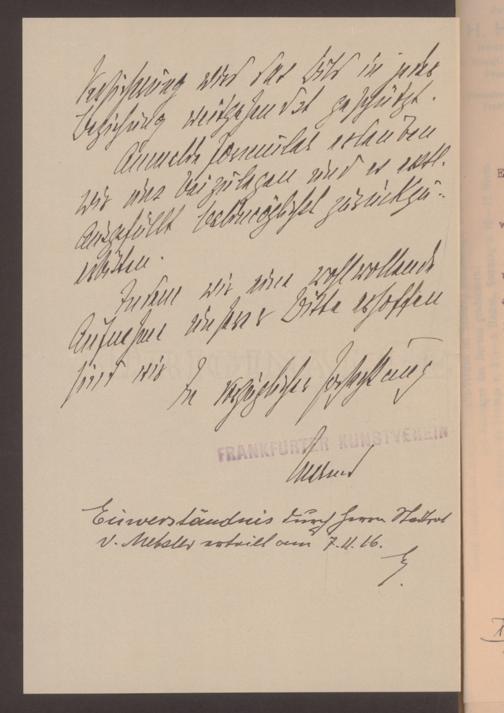 Versicherung wird das Bild in jeder
Beziehung weitgehendst geschützt.
Anmelde Formular erlauben
wir uns beizulegen und es
ausgefüllt baldmöglichst zurückzu-
erbitten.
Indem wir eine wohlwollende
Aufnahme unserer Bitte erhoffen
sind wir
In vorzüglicher Hochachtung
FRANKFURTER KUNSTVEREIN
Einverständnis durch Herrn Stadtrat
v. Metzler erteilt am 7.11.16.